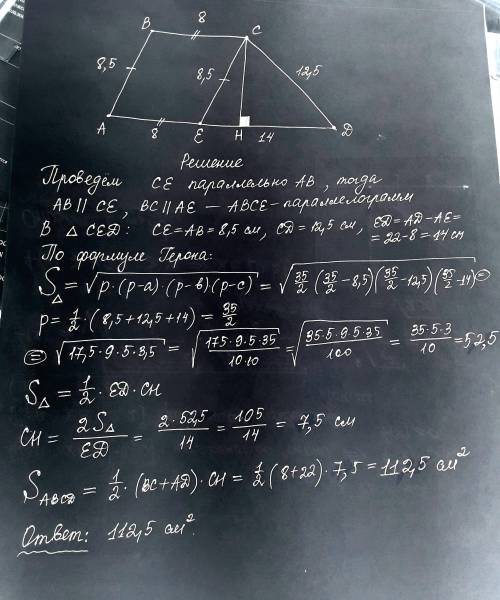 B 8 C
8,5 8,5 12,5
A 8 E H 14 D
Решение
Проведём CE параллельно AB, тогда
AB || CE, BC || AE — ABCE - параллелограмм
В △ CED: CE = AB = 8,5 см, CD = 12,5 см, ED = AD - AE =
= 22 - 8 = 14 см
По формуле Герона:
S△ = √(p·(p-a)·(p-b)(p-c)) = √(35/2 (35/2 - 8,5)(35/2 - 12,5)(35/2 - 14)) =
p = 1/2 · (8,5 + 12,5 + 14) = 35/2
= √(17,5·9·5·3,5) = √(175·9·5·35/10·10) = √(35·5·9·5·35/100) = 35·5·3/10 = 52,5
S△ = 1/2 · ED · CH
CH = 2S△/ED = 2·52,5/14 = 105/14 = 7,5 см
S ABCD = 1/2 · (BC + AD) · CH = 1/2 (8 + 22) · 7,5 = 112,5 см²
Ответ: 112,5 см².